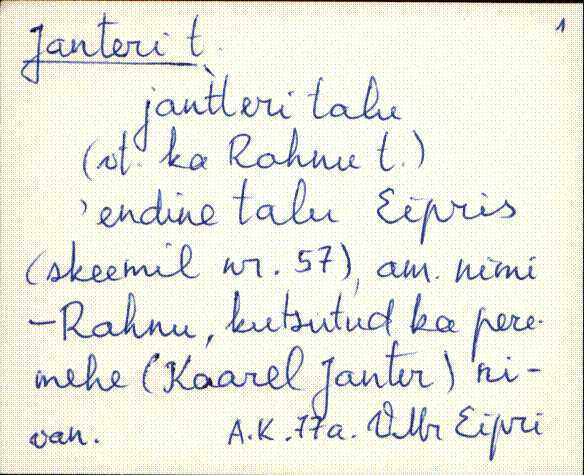 1
Janteri t.
jantˋteri talu
(vt. ka Rahnu t.)
'endine talu Eipris
(skeemil nr. 57), am. nimi
– Rahnu, kutsutud ka pere-
mehe (Kaarel Janter) ni-
van. A.K. 77a. VMr Eipri